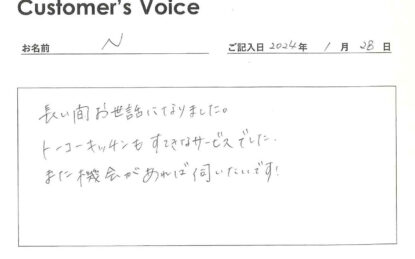 Customer's Voice
お名前 N ご記入日 2024年 1月 28日
長い間お世話になりました。
トーコーキッチンもすてきなサービスでした.
また機会があれば伺いたいです!